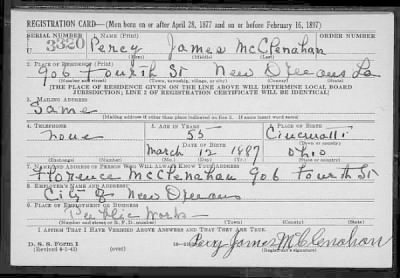 REGISTRATION CARD—(Men born on or after April 28, 1877 and on or before February 16, 1897)
SERIAL NUMBER 1. NAME (Print) ORDER NUMBER
3320 Percy James McClenahan
(First) (Middle) (Last)
2. PLACE OF RESIDENCE (Print)
906 Fourth St New Orleans La
(Number and street) (Town, township, village, or city) (County) (State)
[THE PLACE OF RESIDENCE GIVEN ON THE LINE ABOVE WILL DETERMINE LOCAL BOARD
JURISDICTION; LINE 2 OF REGISTRATION CERTIFICATE WILL BE IDENTICAL]
3. MAILING ADDRESS
Same
(Mailing address if other than place indicated on line 2. If same insert word same)
4. TELEPHONE 5. AGE IN YEARS 6. PLACE OF BIRTH
None 55 Cincinatti
DATE OF BIRTH (Town or county)
March 12 1887 Ohio
(Exchange) (Number) (Mo.) (Day) (Yr.) (State or country)
7. NAME AND ADDRESS OF PERSON WHO WILL ALWAYS KNOW YOUR ADDRESS
Florence McClenahan 906 Fourth St
8. EMPLOYER'S NAME AND ADDRESS
City of New Orleans
9. PLACE OF EMPLOYMENT OR BUSINESS
Public Works
(Number and street or R. F. D. number) (Town) (County) (State)
I AFFIRM THAT I HAVE VERIFIED ABOVE ANSWERS AND THAT THEY ARE TRUE.
D. S. S. Form 1
(Revised 4-1-42) (over) Percy James McClenahan